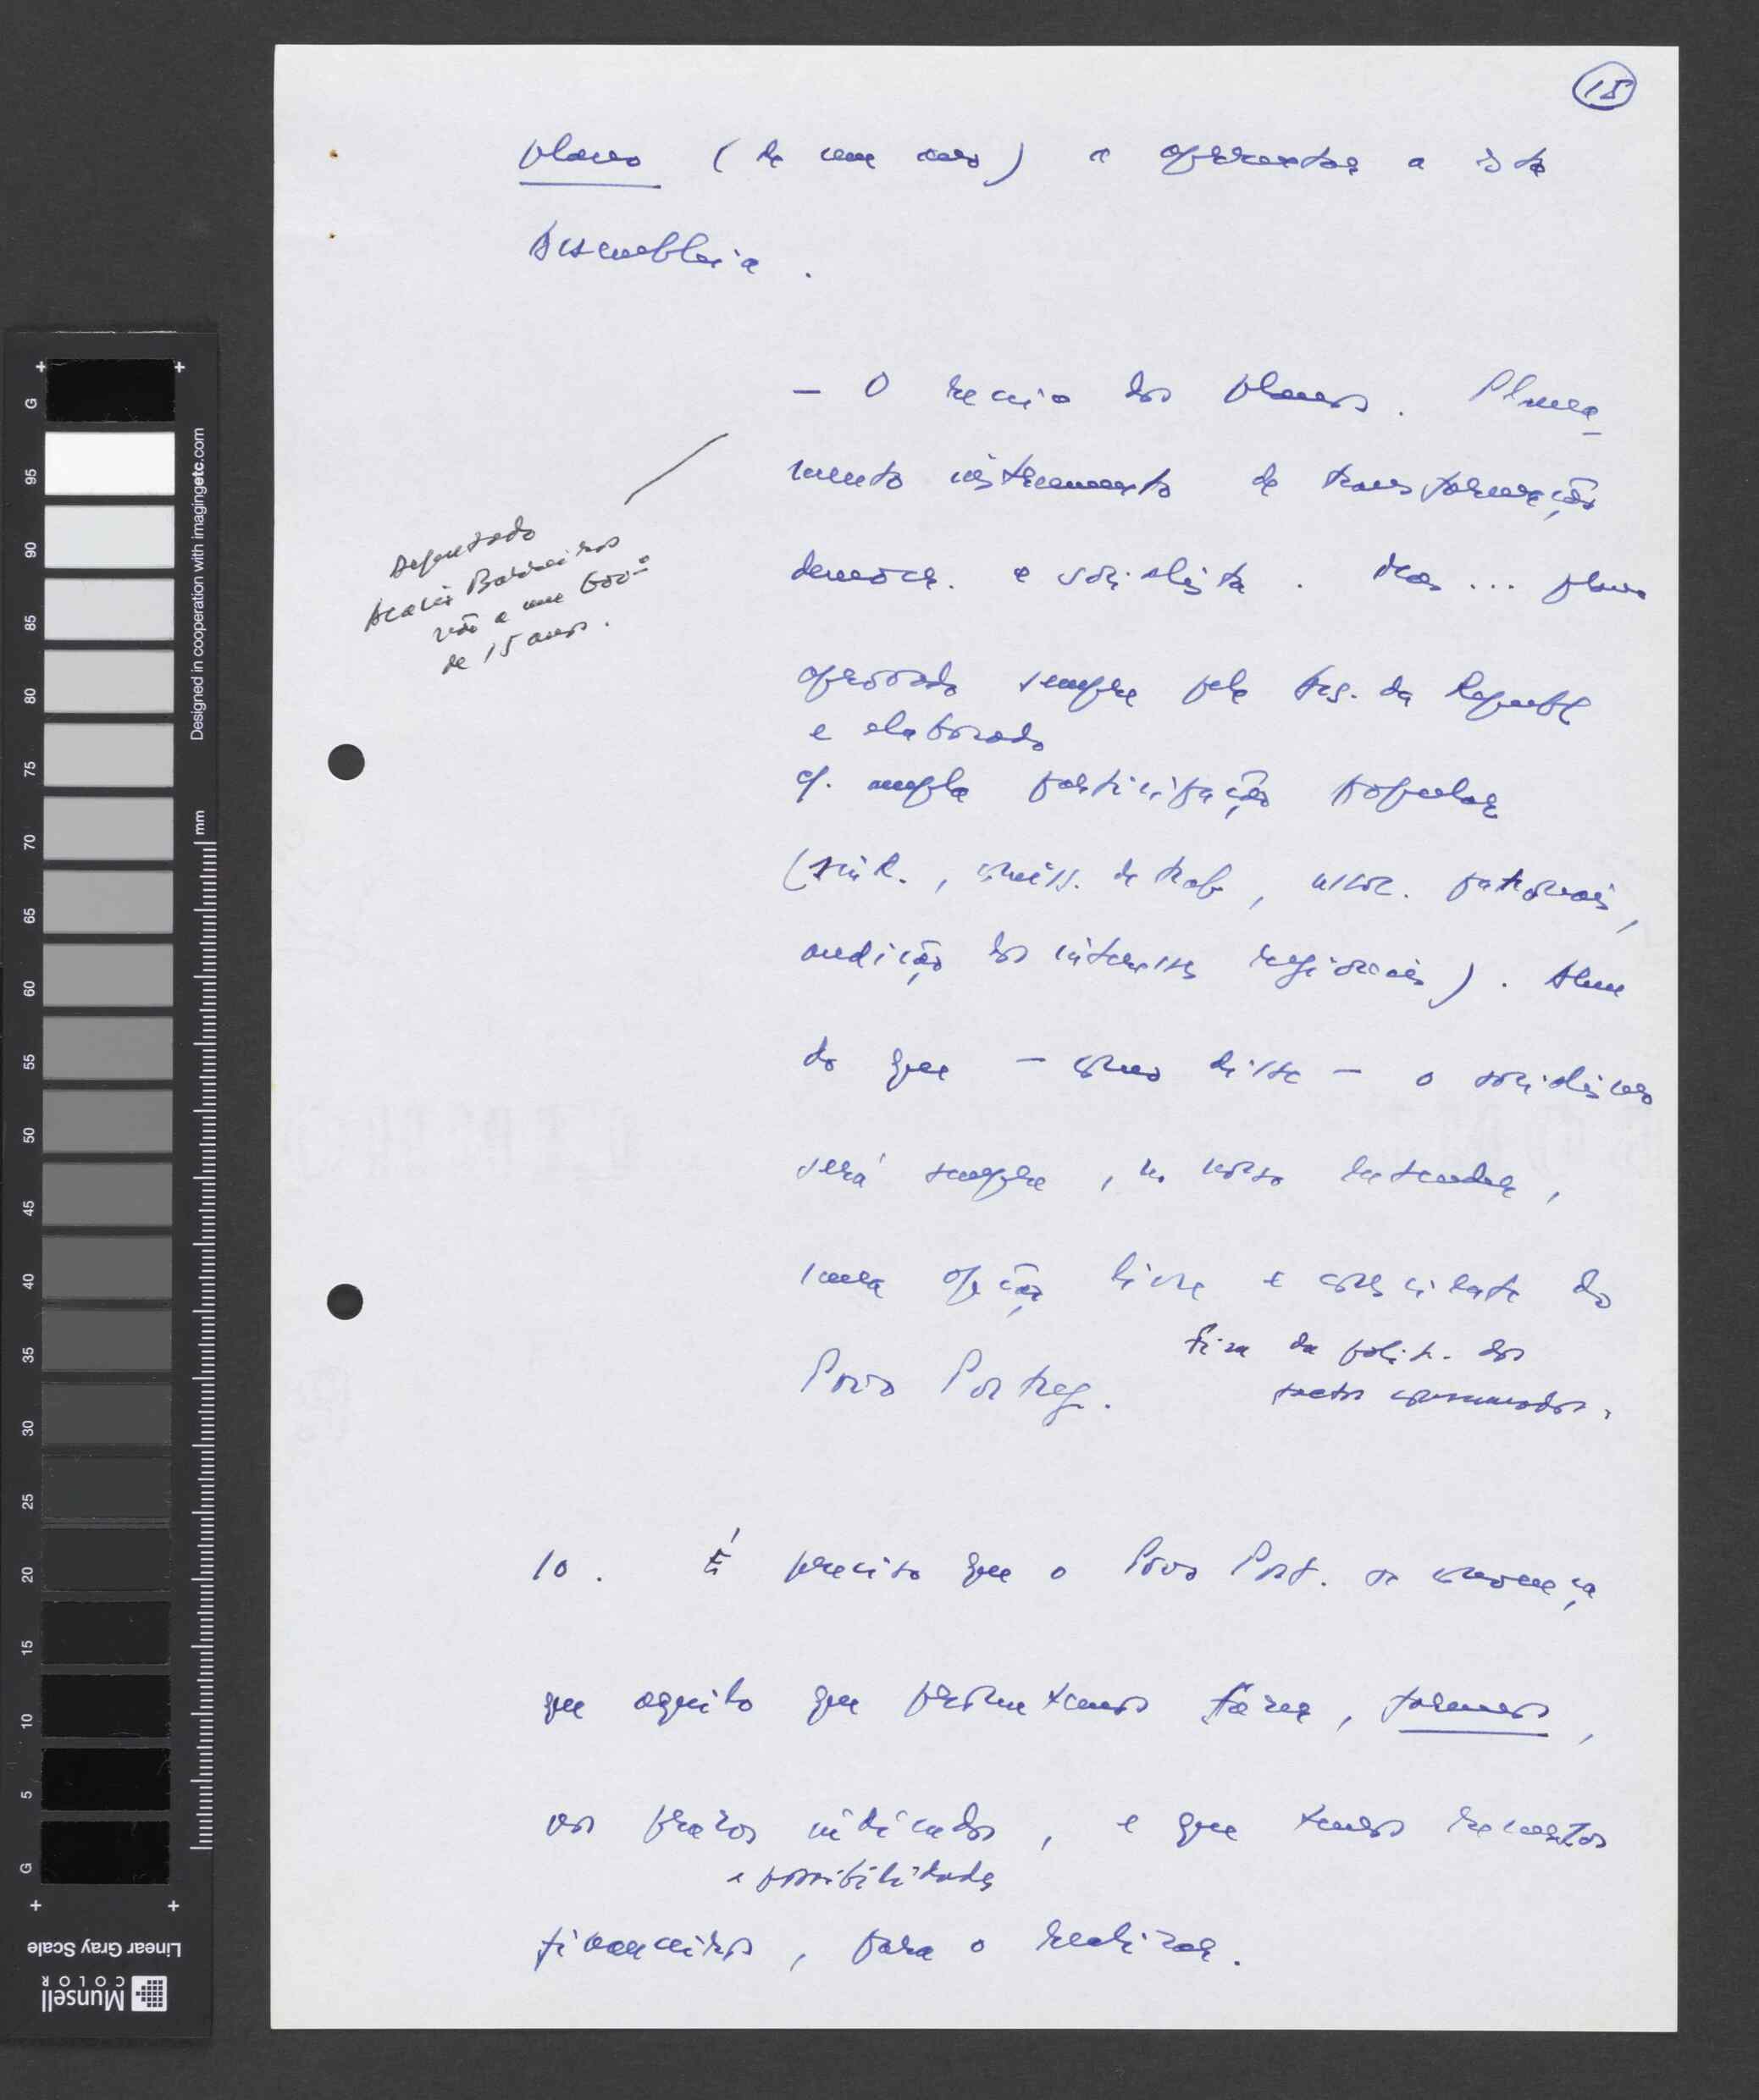 18
plano (de um ano) a apresentar a esta
Assembleia.
- O receio dos planos. Planea
mento instrumento de transformação
democr. e socialista. Mas ... plano
aprovado sempre pela Ass. da Repúbl
e elaborado
c/. ampla participação popular
(sind., comiss. de trab, assoc. patronais,
audição dos interesses regionais). Alem
do que - como disse - o socialismo
será sempre, no nosso entender,
uma opção livre e consciente do
Povo Portug.
fim da polit. dos
factos consumados.
Deputado
Acácio Barreiros
não a um Gov.º
de 15 anos.
10. É preciso que o Povo Port. se convença
que aquilo que prometemos fazer, faremos,
nos prazos indicados, e que temos recursos
e possibilidades
financeiros, para o realizar.
G 95 90 85 80 75 70 65 60 55 50 45 40 35 30 25 20 15 10 5 G
Designed in cooperation with imagingetc.com
mm
Linear Gray Scale
Munsell
COLOR